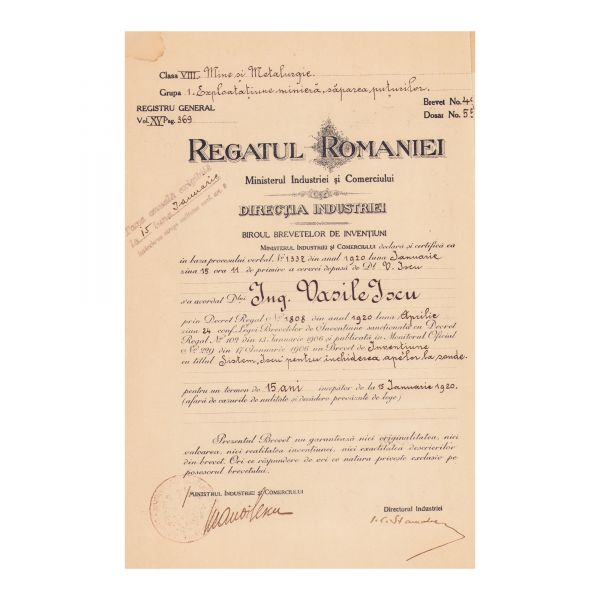 Clasa VIII. Mine și Metalurgie.
Grupa 1. Exploatațiune minieră, săparea puțurilor.
REGISTRU GENERAL
Brevet No. 49
Vol. XV Pag. 369
Dosar No. 55
REGATUL ROMANIEI
Ministerul Industriei și Comerciului
DIRECȚIA INDUSTRIEI
BIROUL BREVETELOR DE INVENȚIUNI
Taxa anuală exigibilă
la 15 luna Ianuarie
MINISTERUL INDUSTRIEI ȘI COMERCIULUI declară și certifică că
în baza procesului verbal No 1332 din anul 1920 luna Ianuarie
ziua 15 ora 11 de primire a cererei depusă de Dl V. Iscu
s'a acordat Dlui Ing. Vasile Iscu
prin Decret Regal No 1808 din anul 1920 luna Aprilie
ziua 24 conf. Legii Brevetelor de Invențiune sancționată cu Decret
Regal No 102 din 13 Ianuarie 1906 și publicată în Monitorul Oficial
No 229 din 17 Ianuarie 1906 un Brevet de Invențiune
cu titlul Sistem Iscu pentru închiderea apelor la sonde.
pentru un termen de 15 ani începător de la 15 Ianuarie 1920.
(afară de cazurile de nulitate și decădere prevăzute de lege)
Prezentul Brevet nu garantează nici originalitatea, nici
valoarea, nici realitatea invențiunei, nici exactitatea descrierilor
din brevet. Ori ce răspundere de ori ce natură privește exclusiv pe
posesorul brevetului.
MINISTRUL INDUSTRIEI ȘI COMERCIULUI
Directorul Industriei